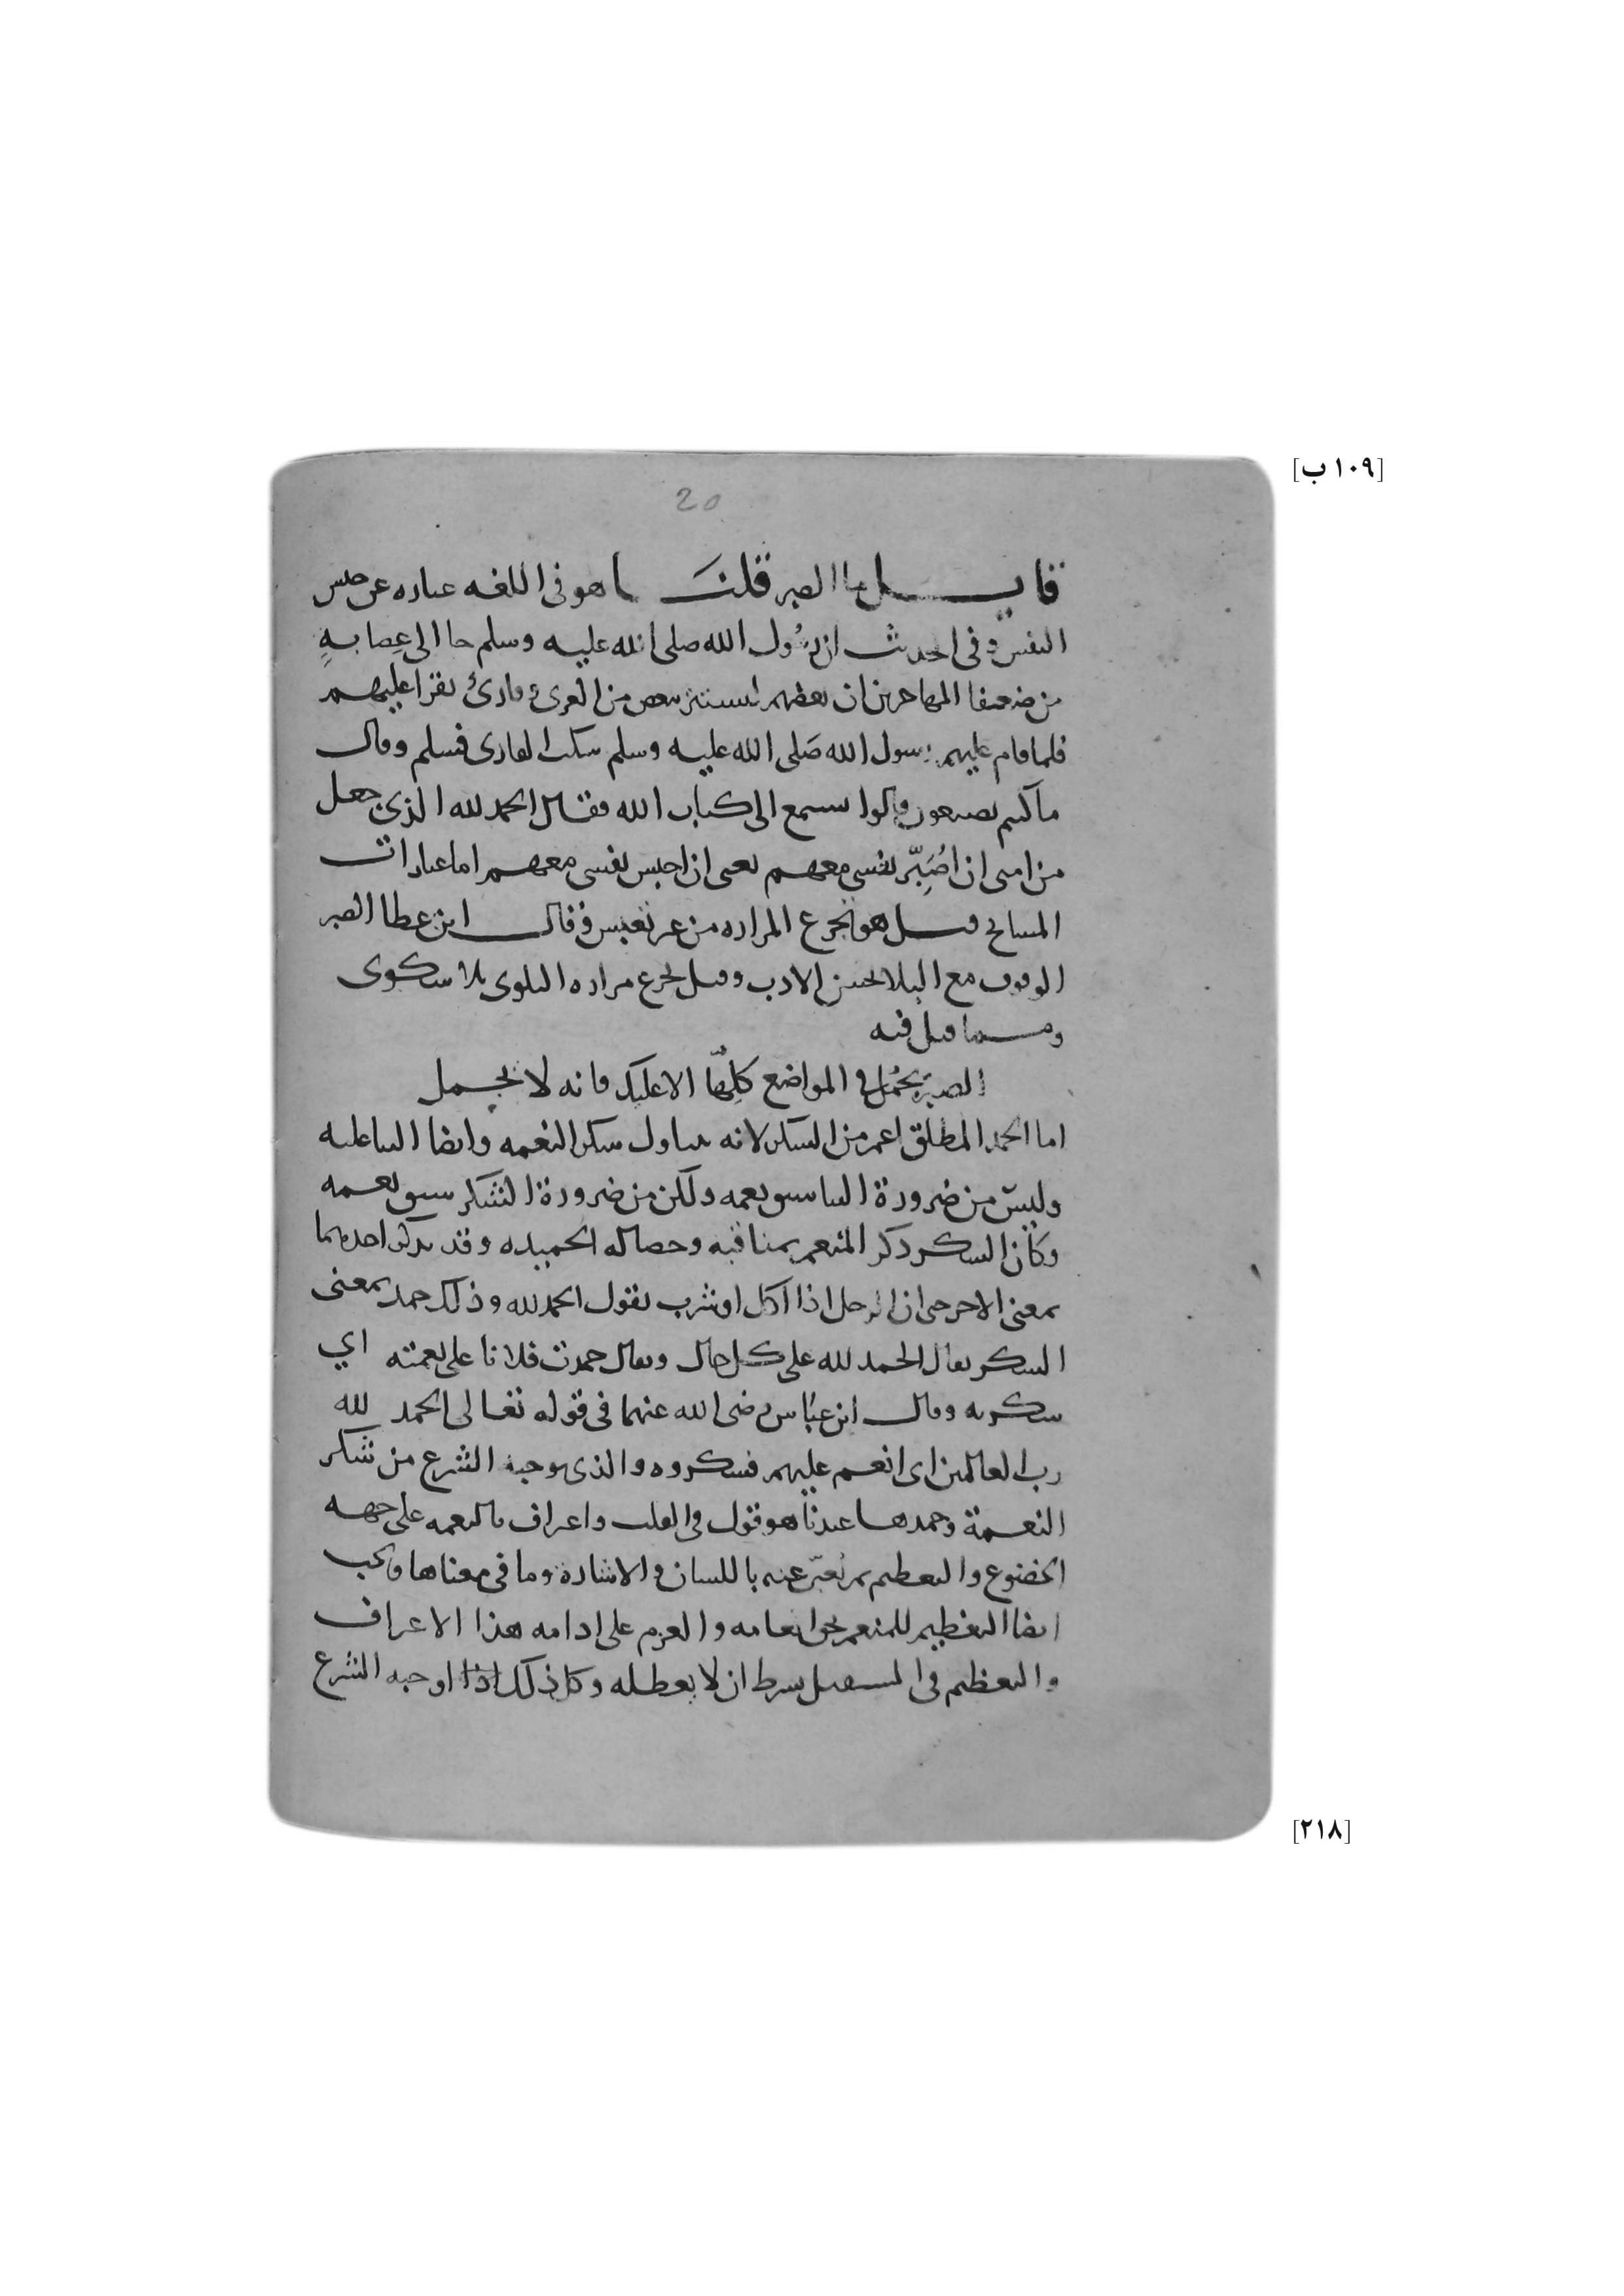 [١٠٩ ب]
20
قايل ما الصبر قلنا هو في اللغه عباره عن حبس
النفس وفي الحديث ان رسول الله صلى الله عليه وسلم جا الى عصابةٍ
من ضعفا المهاجرين ان بعضهم ليستتر ببعض من العرى وقارئ يقرا عليهم
فلما قام عليهم رسول الله صَلى الله عليه وسلم سكت القارى فسلم وقال
ما كنتم تصنعون قالوا نستمع الى كتاب الله فقال الحمد لله الذى جعل
من امتى ان اُصَبِّر نفسى معهم يعنى ان احبس نفسى معهم اما عبارات
المشايخ قيل هو تجرع المراره من غير تعبيس وقال ابن عطا الصبر
الوقوف مع البلا بحسن الادب وقيل تجرع مراره البلوى بلا شكوى
ومما قيل فيه
الصبر يجمُل فى المواضع كلِّها الا عليك فانه لا يجمل
اما الحمد المطلق اعم من الشكر لانه يتناول شكر النعمه وايضا الثنا عليه
وليسَ من ضرورة الثنا سبق نعمه ولكن من ضرورة الشكر سبق نعمه
وكان الشكر ذكر المنعم بمناقبه وخصاله الحميده وقد يذكر احدهما
بمعنى الاخر حتى ان الرجل اذا اكل او شرب يقول الحمد لله وذلك حمد بمعنى
الشكر يقال الحمد لله على كل حال ويقال حمدت فلانا على نعمته اي
شكرته وقال ابن عبَّاس رضى الله عنهما فى قوله تعالى الحمد لله
رب العالمين اى انعم عليهم فشكروه والذى يوجبه الشرع من شكر
النعمة وحمدها عندنا هو قول فى القلب واعتراف بالنعمه على جهه
الخضوع والتعظيم ثم يُعبّر عنه باللسان والاشارة وما فى معناها ويجب
ايضا التعظيم للمنعم بحق انعامه والعزم على ادامه هذا الاعتراف
والتعظيم فى المستقبل بشرط ان لا يعطله وكل ذلك اذا اوجبه الشرع
[٢١٨]